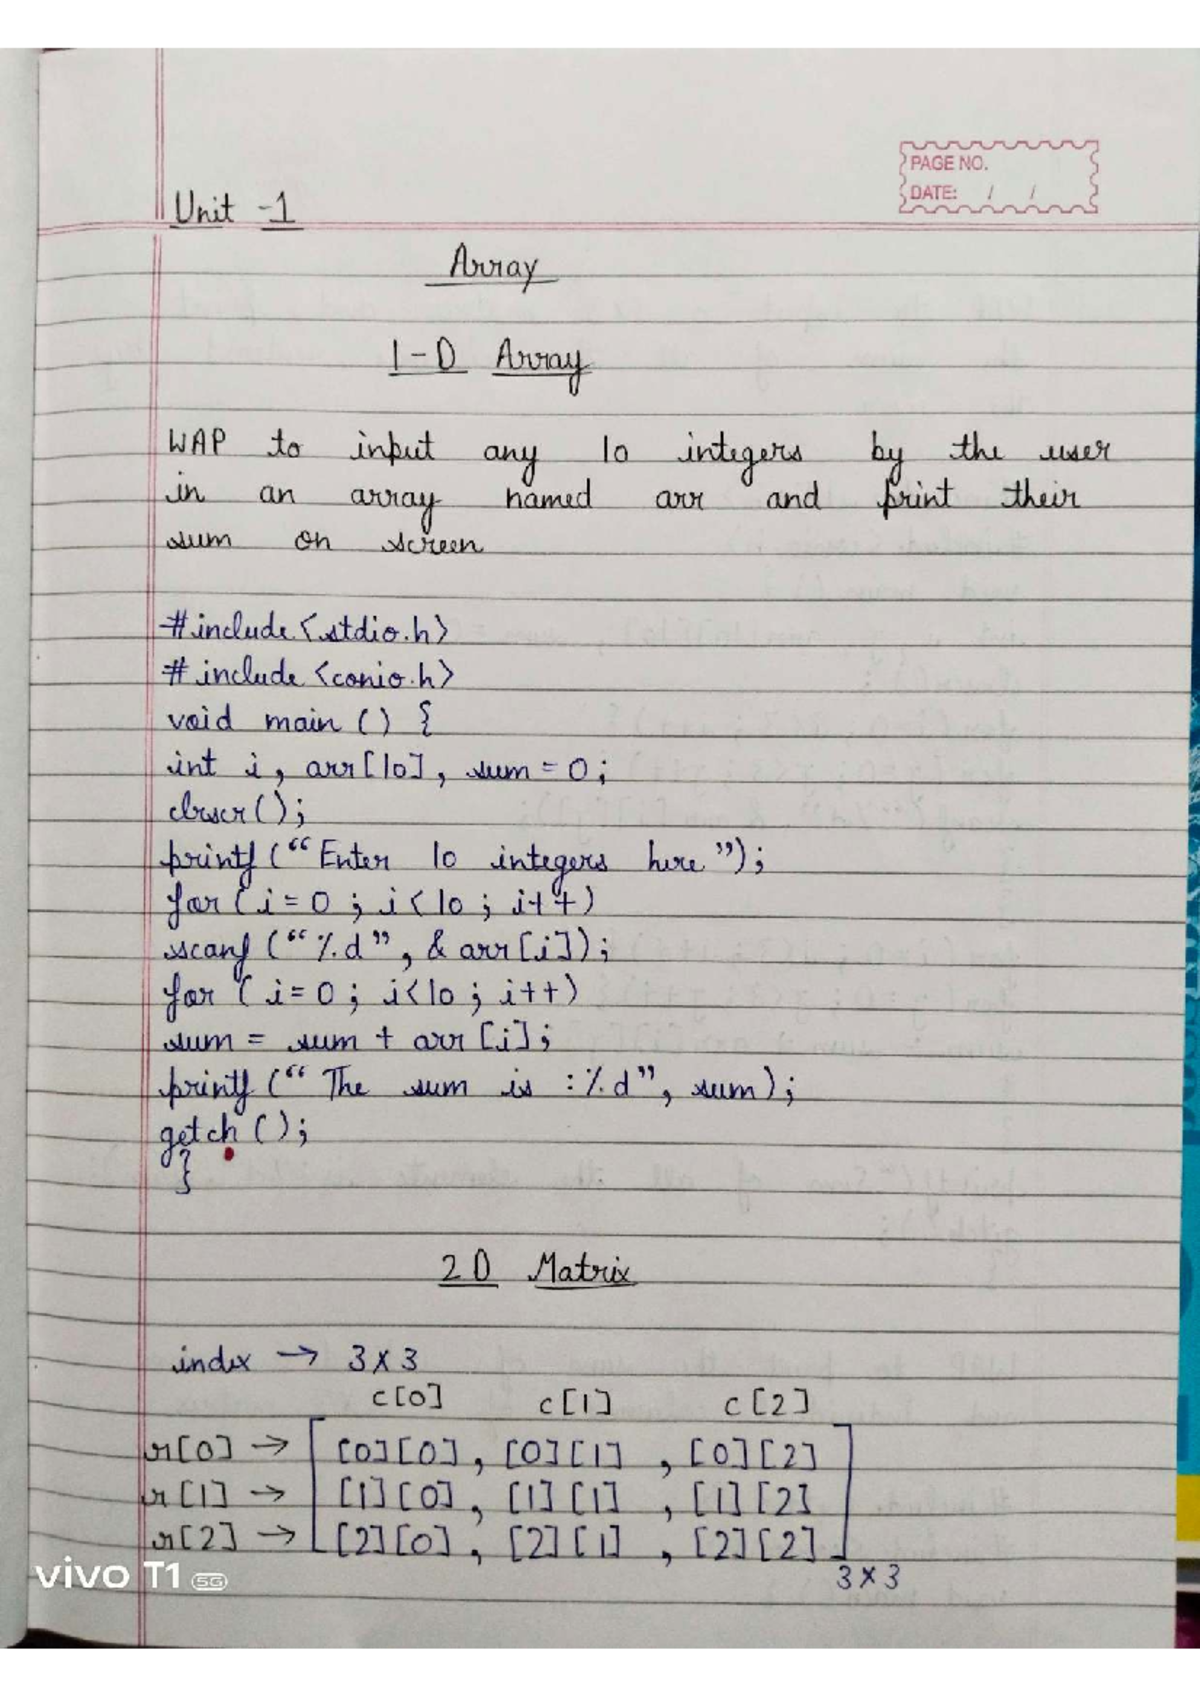 PAGE NO.
DATE: / /
Unit -1
Array
1-D Array
WAP to input any 10 integers by the user
in an array named arr and print their
sum on screen
#include<stdio.h>
#include<conio.h>
void main () {
int i, arr[10], sum = 0;
clrscr();
printf (“Enter 10 integers here”);
for (i = 0 ; i < 10 ; i++)
scanf (“%d”, & arr[i]);
for (i = 0 ; i<10 ; i++)
sum = sum + arr [i];
printf (“ The sum is :%d”, sum);
getch ();
}
2D Matrix
index → 3 x 3
c[0] c[1] c[2]
r[0] → [0][0], [0][1] , [0][2]
r[1] → [1][0], [1][1] , [1][2]
r[2] → [2][0], [2][1] , [2][2]
3 x 3
vivo T1 5G